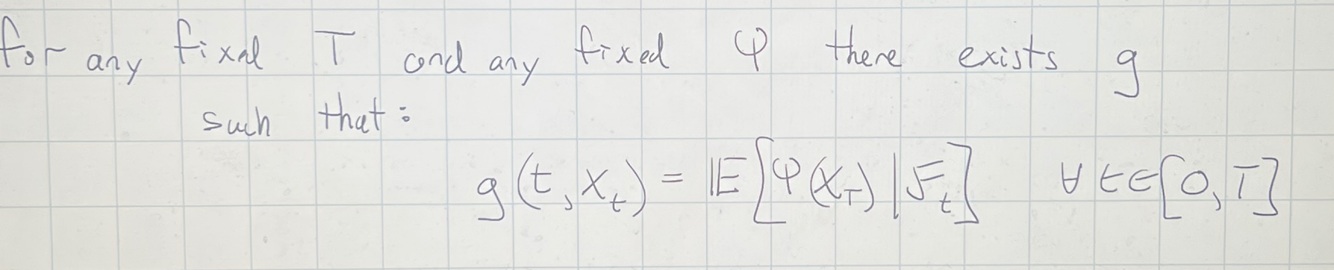 for any fixed T and any fixed φ there exists g
such that:
g(t, X_t) = 𝔼[φ(X_T) | ℱ_t] ∀ t ∈ [0, T]